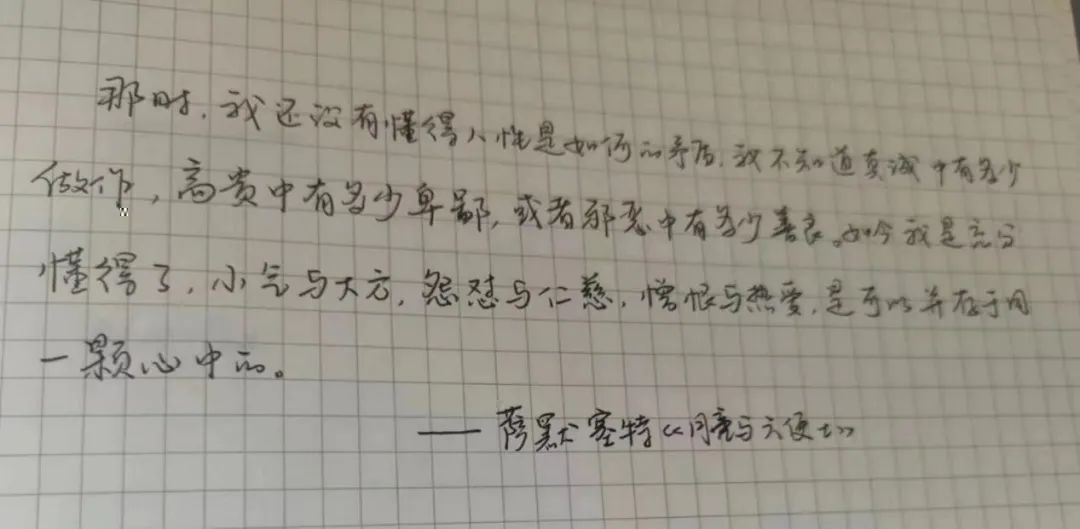 那时,我还没有懂得人性是如何的矛盾,我不知道真诚中有多少
做作,高贵中有多少卑鄙,或者邪恶中有多少善良。如今我是充分
懂得了,小气与大方,怨怼与仁慈,憎恨与热爱,是可以并存于同
一颗心中的。
——萨默塞特《月亮与六便士》